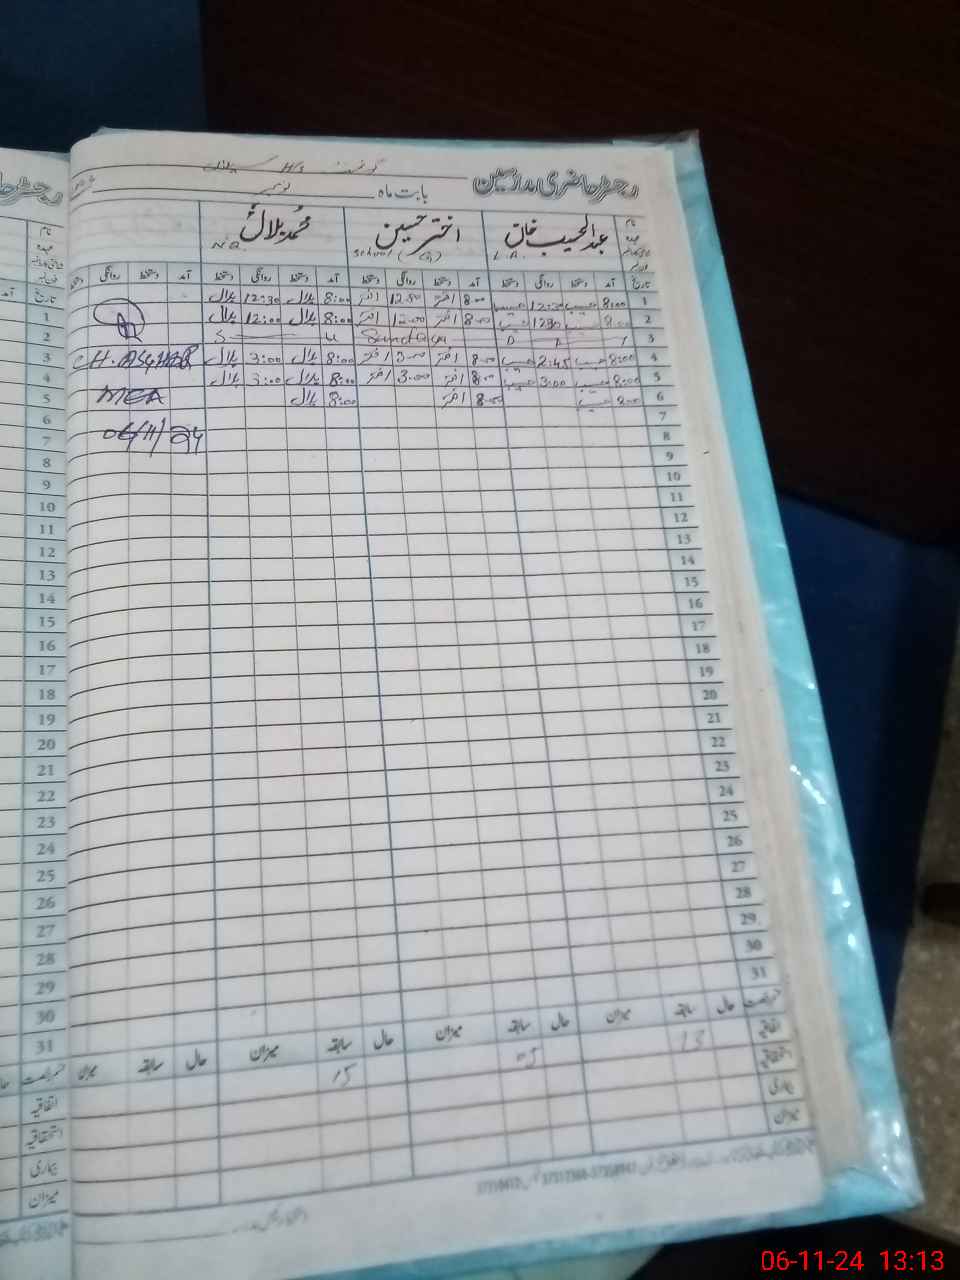 رجسٹر حاضری مدارسین
بابت ماہ نومبر
نام عبدالحسیب خان اختر حسین محمد بلال
عہدہ L.A. School ( N.Q.
تاریخ آمد دستخط روانگی دستخط آمد دستخط روانگی دستخط آمد دستخط روانگی دستخط آمد دستخط روانگی
1 8:00 حسیب 12:30 حسیب 8:00 اختر 12:30 اختر 8:00 بلال 12:30 بلال
2 8:00 حسیب 12:30 حسیب 8:00 اختر 12:00 اختر 8:00 بلال 12:00 بلال
3 Sunday S
4 8:00 حسیب 2:45 حسیب 8:00 اختر 3:00 اختر 8:00 بلال 3:00 بلال
CH. ASGHAR
5 8:00 حسیب 3:00 حسیب 8:00 اختر 3:00 اختر 8:00 بلال 3:00 بلال
MEA
6 8:00 حسیب 8:00 اختر 8:00 بلال
06/11/24
7
8
9
10
11
12
13
14
15
16
17
18
19
20
21
22
23
24
25
26
27
28
29
30
31
قسم رخصت حال سابقہ میزان حال سابقہ میزان حال سابقہ میزان حال سابقہ میزان
اتفاقیہ 13 05 15
استحقاقیہ
بیماری
میزان
رجسٹر حا
نام
عہدہ
تاریخ آمد
1
2
3
4
5
6
7
8
9
10
11
12
13
14
15
16
17
18
19
20
21
22
23
24
25
26
27
28
29
30
31
قسم رخصت حال
اتفاقیہ
استحقاقیہ
بیماری
میزان
06-11-24 13:13